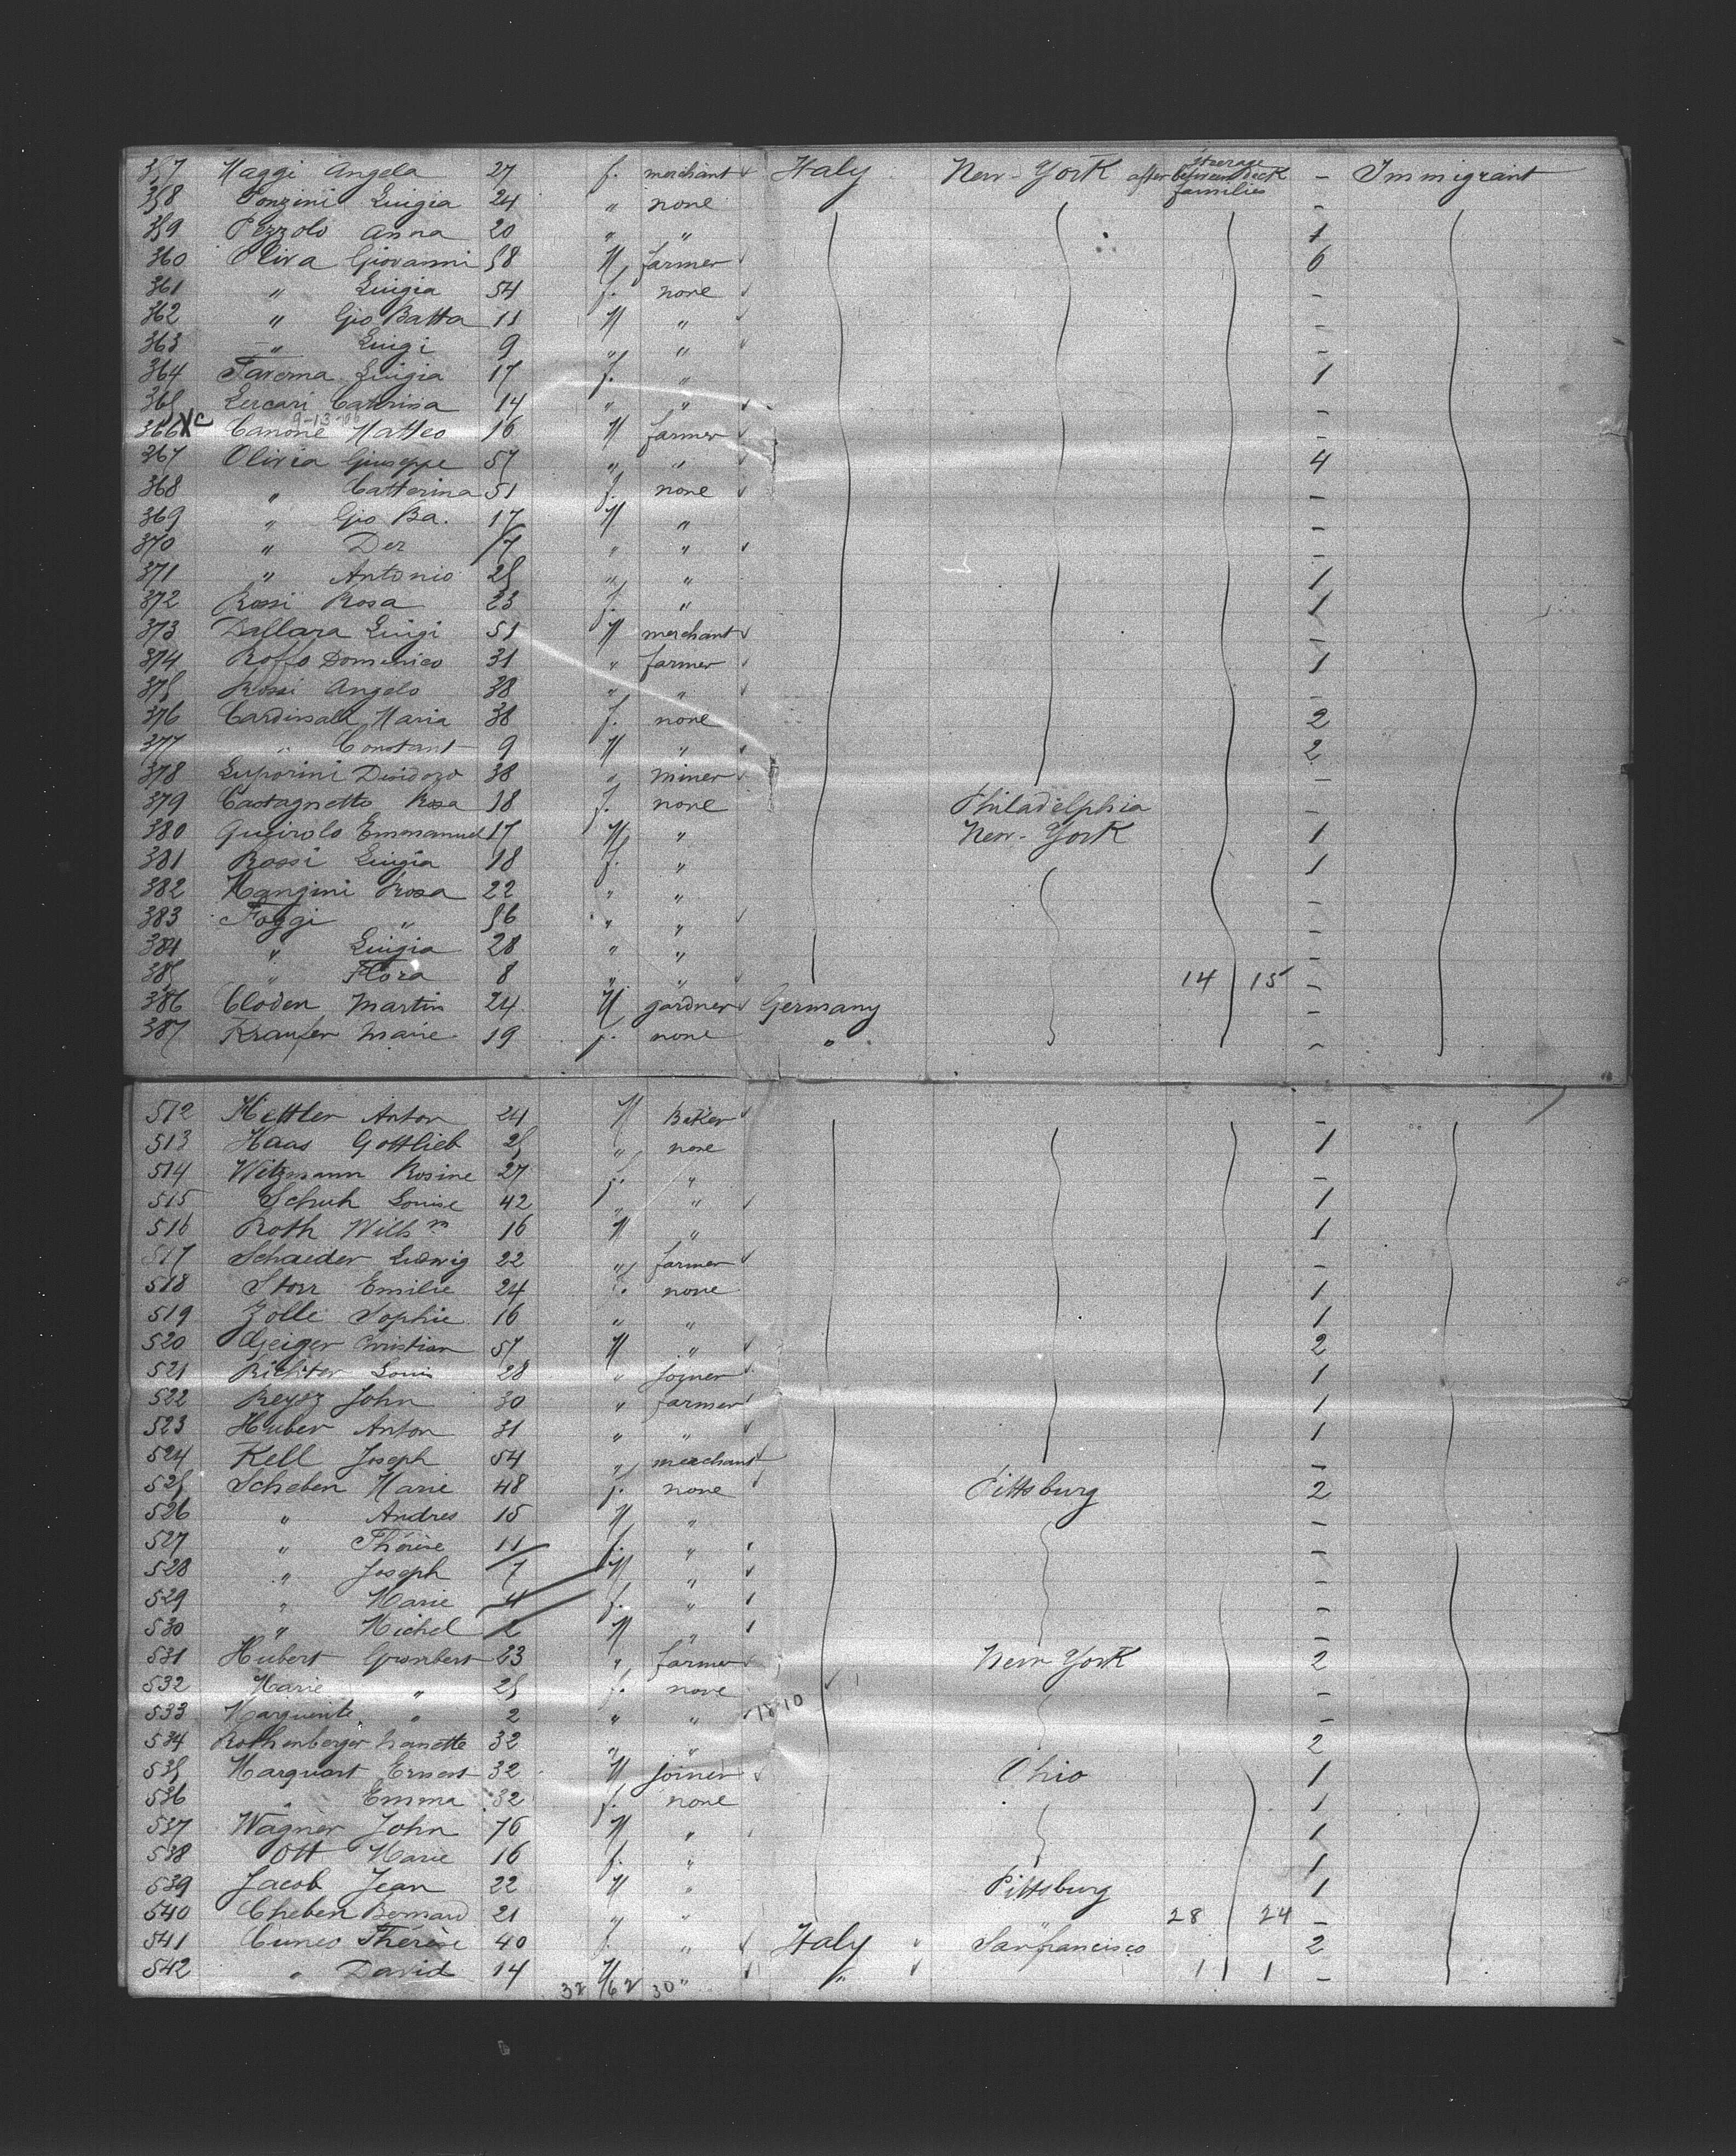 357 Maggi Angela 27 f. merchant Italy New-York after steerage between deck families - Immigrant
358 Ponzini Luigia 24 " none -
359 Pezzolo Anna 20 " " 1
360 Oliva Giovanni 58 M farmer 6
361 " Luigia 54 f. none -
362 " Gio Batta 11 M " -
363 " Luigi 9 " " -
364 Taverna Luigia 17 f. " 1
365 Lercari Catterina 14 " " -
366 Xc Canone Matteo 16 M farmer -
367 Oliva Giuseppe 57 " " 4
368 " Catterina 51 f. none -
369 " Gio Ba. 17 M " -
370 " Der 7 " " -
371 " Antonio 25 " " 1
372 Rossi Rosa 23 f. " 1
373 Dallara Luigi 51 M merchant -
374 Roffo Domenico 31 " farmer 1
375 Rossi Angelo 38 " " -
376 Cardinale Maria 38 f. none 2
377 " Constant 9 M " 2
378 Luporini 38 " miner -
379 Castagnetto Rosa 18 f. none Philadelphia -
380 Queirolo Emmanuel 17 M " New-York 1
381 Rossi Luigia 18 f. " 1
382 Mangini Rosa 22 " " -
383 Foggi " 56 " " -
384 " Luigia 28 " " -
385 " Flora 8 " " 14 15 -
386 Cloden Martin 24 M gardner Germany -
387 Maire 19 f. none " -
512 Mettler Anton 24 M Baker -
513 Haas Gottlieb 25 " none 1
514 Witzmann Rosine 27 f. " -
515 Schuh Louise 42 " " 1
516 Roth Willm 16 M " 1
517 Schaeder Ludwig 22 " farmer -
518 Storr Emilie 24 f. none 1
519 Zolle Sophie 16 " " 1
520 Geiger Christian 57 M " 2
521 Richter Louis 28 " joiner 1
522 Beysz John 30 " farmer 1
523 Huber Anton 31 " " 1
524 Kell Joseph 54 " merchant -
525 Scheben Marie 48 f. none Pittsburg 2
526 " Andres 15 M " -
527 " Thérèse 11 f. " -
528 " Joseph 7 M " -
529 " Marie 4 f. " -
530 " Michel 2 M " -
531 Hubert 23 " farmer New York 2
532 Marie " 25 f. none -
533 Marguerite " 2 " " 18 10 -
534 Rothenberger Nanette 32 " " 2
535 Marquart Ernest 32 M joiner Ohio 1
536 " Emma 32 f. none 1
537 Wagner John 76 M " 1
538 Ott Marie 16 f. " 1
539 Jacob Jean 22 M " Pittsburg 1
540 Cheben Bernard 21 " " 28 24 -
541 Cuneo Thérèse 40 f. " Italy Sanfrancisco 2
542 " David 14 M " " 1 1 -
32 62 30